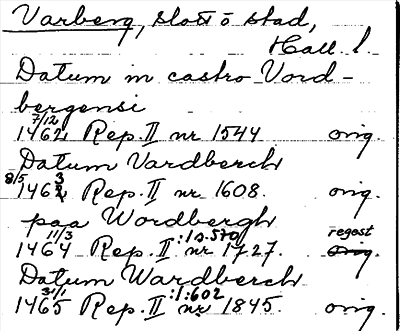 Varberg, slott o stad,
Hall. l.
Datum in castro Vord-
bergensi
7/12
1462 Rep. II nr 1544 orig.
Datum Vardberch
8/5 1463 Rep. II nr 1608. orig.
paa Wordbergh
11/3 :1 s. 570 regest
1464 Rep. II nr 1727. orig.
Datum Wardberch
31/1 :1:602
1465 Rep. II nr 1845. orig.